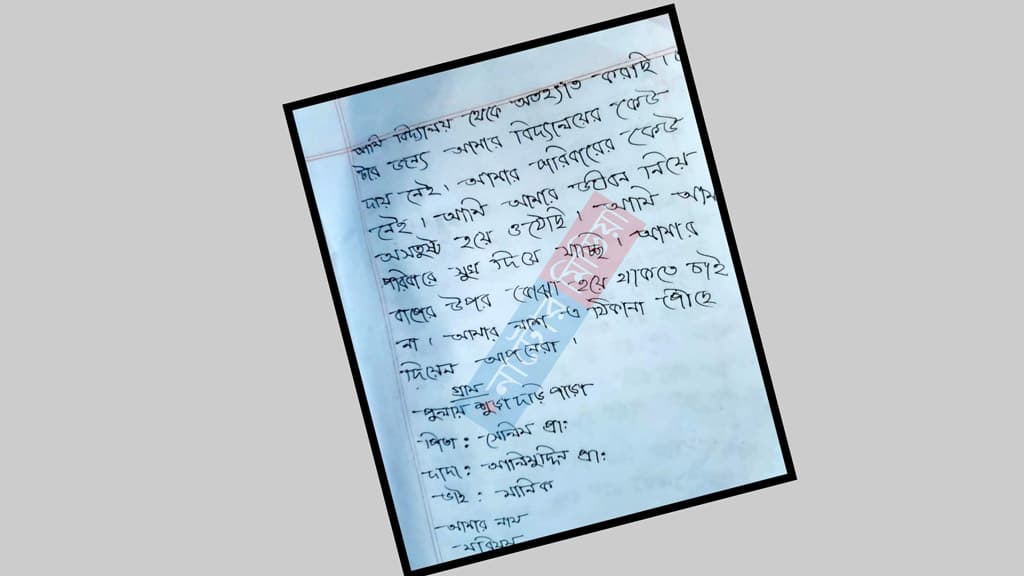 আমি বিদ্যালয় থেকে আত্মহত্যা করছি।
তার জন্যে আমার বিদ্যালয়ের কেউ
দায় নেই। আমার পরিবারের কেউ
নেই। আমি আমার জীবন নিয়ে
অসন্তুষ্ট হয়ে ওঠেছি। আমি আমা
পরিবারে মুখ দিয়ে যাচ্ছি। আমার
বাপের উপর বোঝা হয়ে থাকতে চাই
না। আমার লাশ এ ঠিকানা পৌছে
দিয়েন আপনেরা।
গ্রাম
দাড়ি পাড়া
পিতা: সেলিম প্রা:
দাদা: আলিমুদ্দিন প্রা:
ভাই: মানিক
আমার নাম
মরিয়ম
নাটোর মিডিয়া